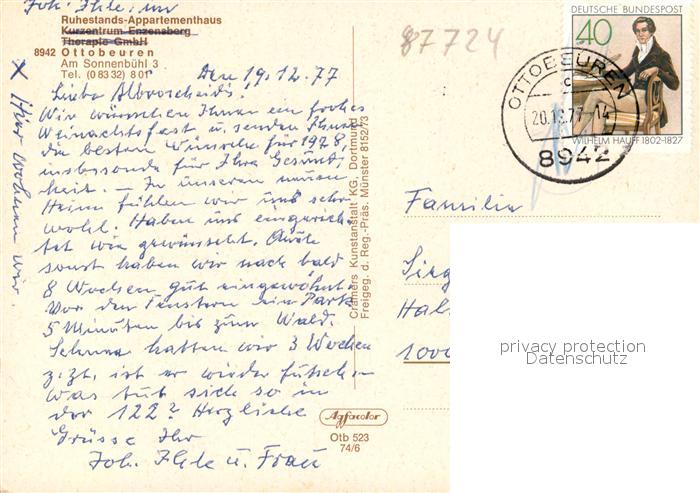 Joh. Ihle: nun
Ruhestands-Appartementhaus
Kurzentrum Enzensberg
Therapie GmbH
8942 Ottobeuren
Am Sonnenbühl 3
Tel. (0 83 32) 801
Den 19.12.77
Liebe
Wir wünschen Ihnen ein frohes
Weinachtsfest u. senden Ihnen
die besten Wünsche für 1978,
insbesondere für Ihre Gesund
heit. — In unserem neuen
Heim fühlen wir uns sehr
wohl. Haben uns eingerich-
tet wie gewünscht.
sonst haben wir nach bald
8 Wochen gut eingewöhnt.
Vor den Fenstern ein Park
5 Minuten bis zum Wald.
Schnee hatten wir 3 Wochen
z. Zt. ist er wieder futsch.—
Was tut sich so in
der 122? Herzliche
Grüsse Ihr
Joh. Ihle u. Frau
x Hier wohnen wir
Cramers Kunstanstalt KG, Dortmund
Freigeg. d. Reg.-Präs. Münster 8152/73
Agfacolor
Otb 523
74/6
87724
DEUTSCHE BUNDESPOST
40
WILHELM HAUFF 1802-1827
OTTOBEUREN
c
20.12.77-14
8942
Familie
Sieg
Hal
1000
privacy protection
Datenschutz